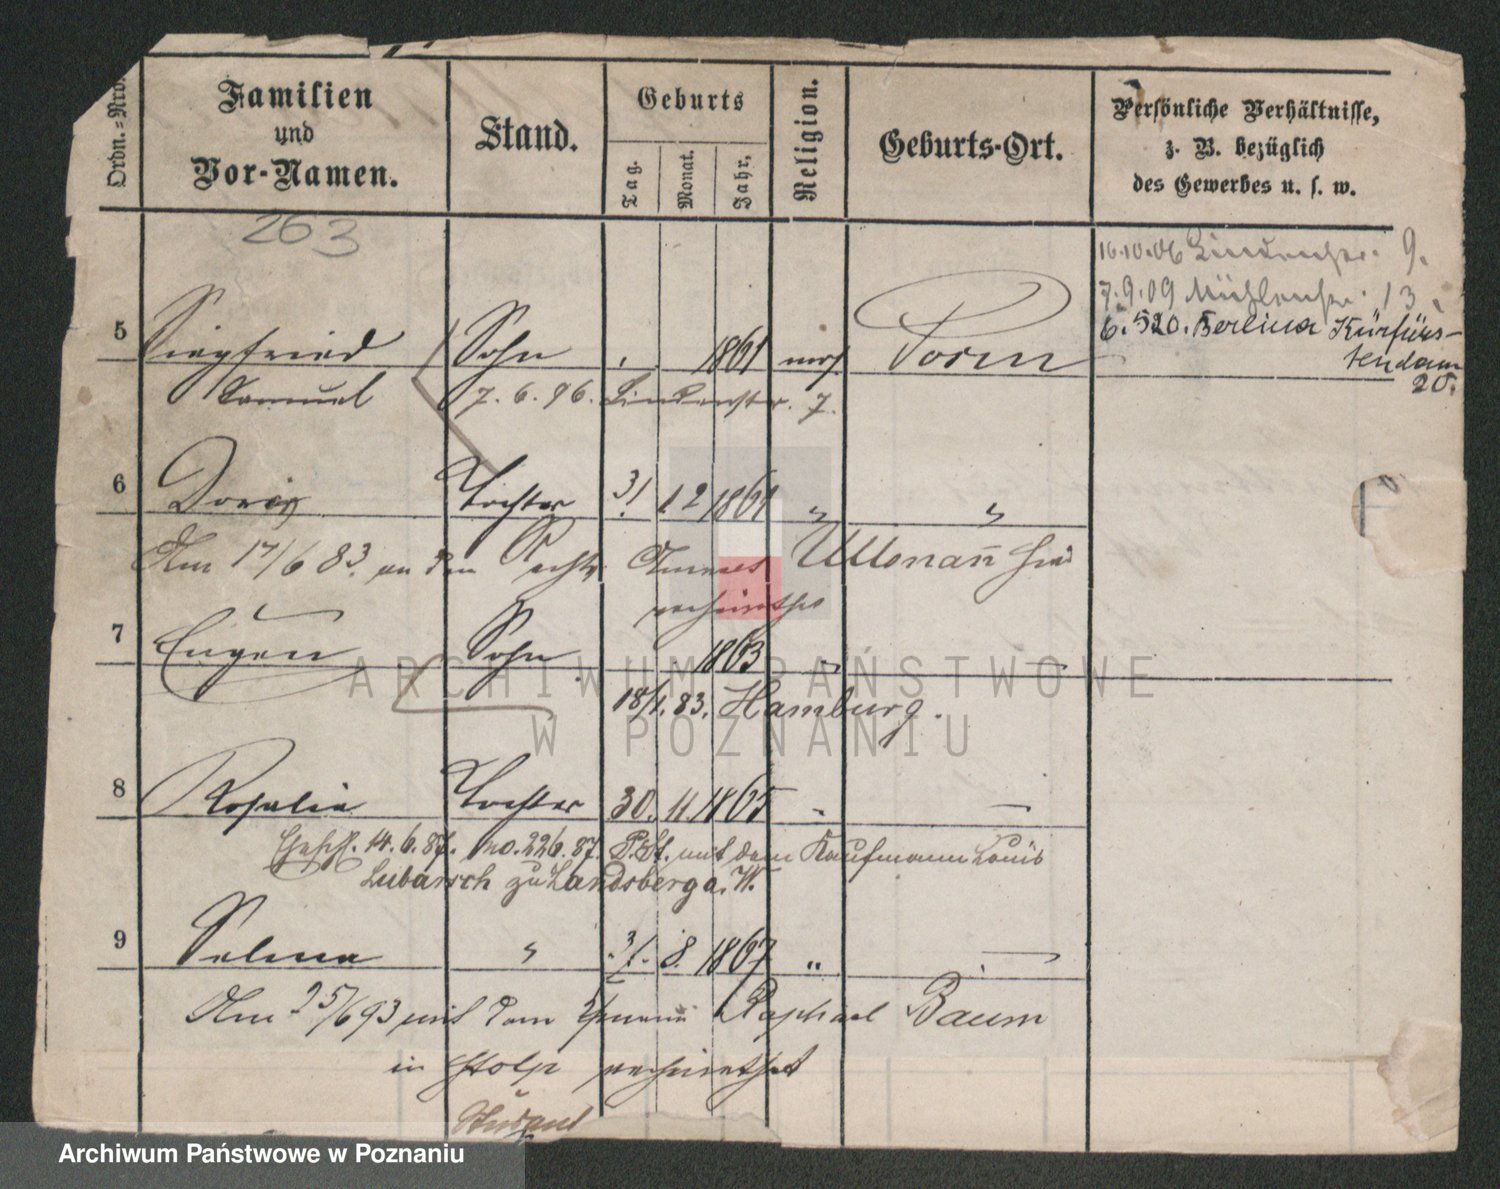 Ordn.=Nro.
Familien
und
Vor-Namen.
Stand.
Geburts
Tag.
Monat.
Jahr,
Religion.
Geburts-Ort.
Persönliche Verhältnisse,
z. B. bezüglich
des Gewerbes u. s. w.
263
16.10.06 Lindenstr. 9.
7.9.09 Mühlenstr. 13.
6.5.20. Berlin Kürfürs-
tendam
20.
5 Siegfried Sohn 1861 mos. Posen
Samuel 7.6.96. Lindenstr. 7.
6 Doris Tochter 31 12 1861 " "
Am 17/6 83. an den Ullmann
verheirathet
7 Eugen Sohn 1863 "
18/1. 83. Hamburg.
8 Rosalie Tochter 30. 11. 1865 "
Ehesch. 14.6.87. No. 226.87. P.St. mit dem Kaufmann Louis
Lubarsch zu Landsberg a. W.
9 Selma " 31. 8. 1867 "
Am 25/6 93 mit dem Raphael Baum
in Stolp verheirathet
ARCHIWUM PAŃSTWOWE
W POZNANIU
Archiwum Państwowe w Poznaniu